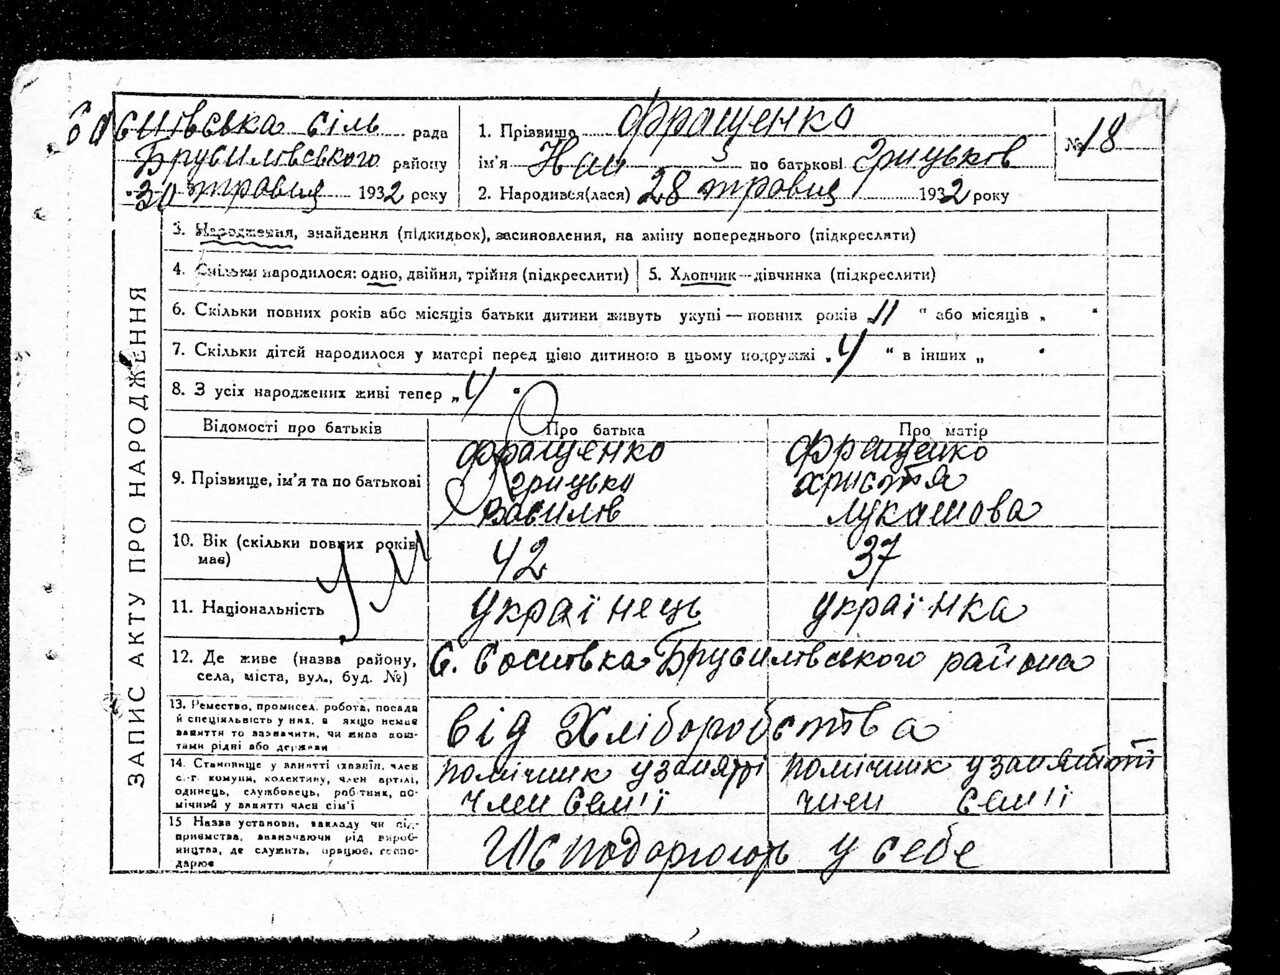 Соснівська сіль рада
Брусилівського району
30 травня 1932 року
1. Прізвище Фращенко
ім'я Іван по батькові Грицьков
2. Народився(лася) 28 травня 1932 року
№ 18
ЗАПИС АКТУ ПРО НАРОДЖЕННЯ
3. Народження, знайдення (підкидьок), засиновлення, на зміну попереднього (підкреслити)
4. Скільки народилося: одно, двійня, трійня (підкреслити)
5. Хлопчик—дівчинка (підкреслити)
6. Скільки повних років або місяців батьки дитини живуть укупі — повних років „11 " або місяців „ "
7. Скільки дітей народилося у матері перед цією дитиною в цьому подружжі „4 " в інших „ "
8. З усіх народжених живі тепер „4 "
Відомості про батьків
Про батька
Про матір
9. Прізвище, ім'я та по батькові
Фращенко
Грицько
Василов
Фращенко
Христя
Лукашова
10. Вік (скільки повних років
має)
42
37
11. Національність
Українець
українка
12. Де живе (назва району,
села, міста, вул., буд. №)
С. Соснівка Брусилівського района
13. Ремество, промисел, робота, посада
й спеціяльність у них, а якщо немає
заняття то зазначити, чи жива кош-
тами рідні або держави
від Хліборобства
14. Становище у занятті (хазяїн, член
с.-г. комуни, колективу, член артілі,
одинець, службовець, робітник, по-
мічний у занятті член сім'ї
помічник у занятті
член сем'ї
помічник у занятті
член сем'ї
15 Назва установи, закладу чи під-
приємства, визначаючи рід вироб-
ництва, де служить, працює, госпо-
дарює
господарюють у себе